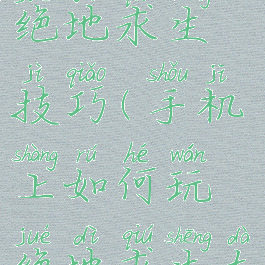 绝地求生
jì qiǎo shǒu jī
技巧(手机
shàng rú hé wán
上如何玩
jué dì qiú shēng dà
绝地求生大